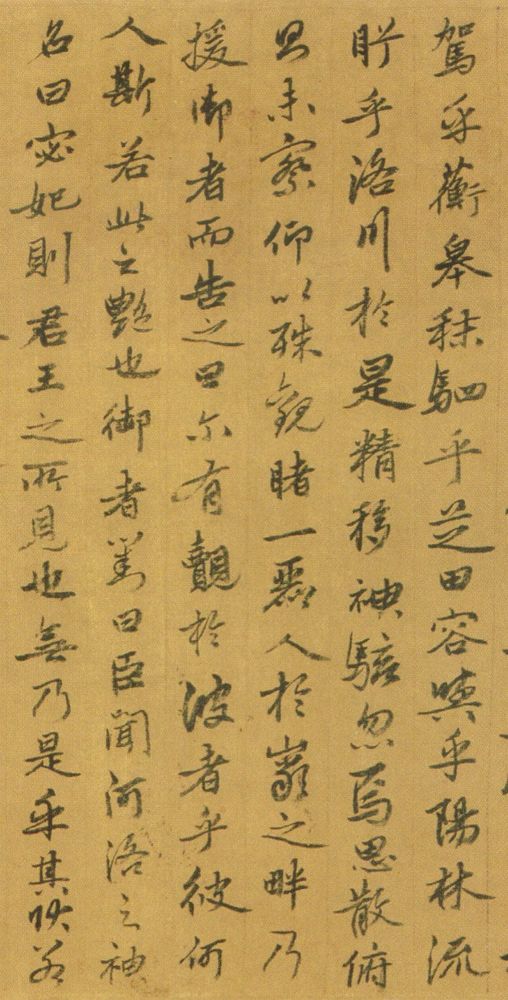 駕乎蘅皋秣駟乎芝田容與乎陽林流
眄乎洛川於是精移神駭忽焉思散俯
則未察仰以殊觀睹一麗人於巖之畔乃
援御者而告之曰尔有覿於彼者乎彼何
人斯若此之艷也御者對曰臣聞河洛之神
名曰宓妃則君王之所見也無乃是乎其狀若